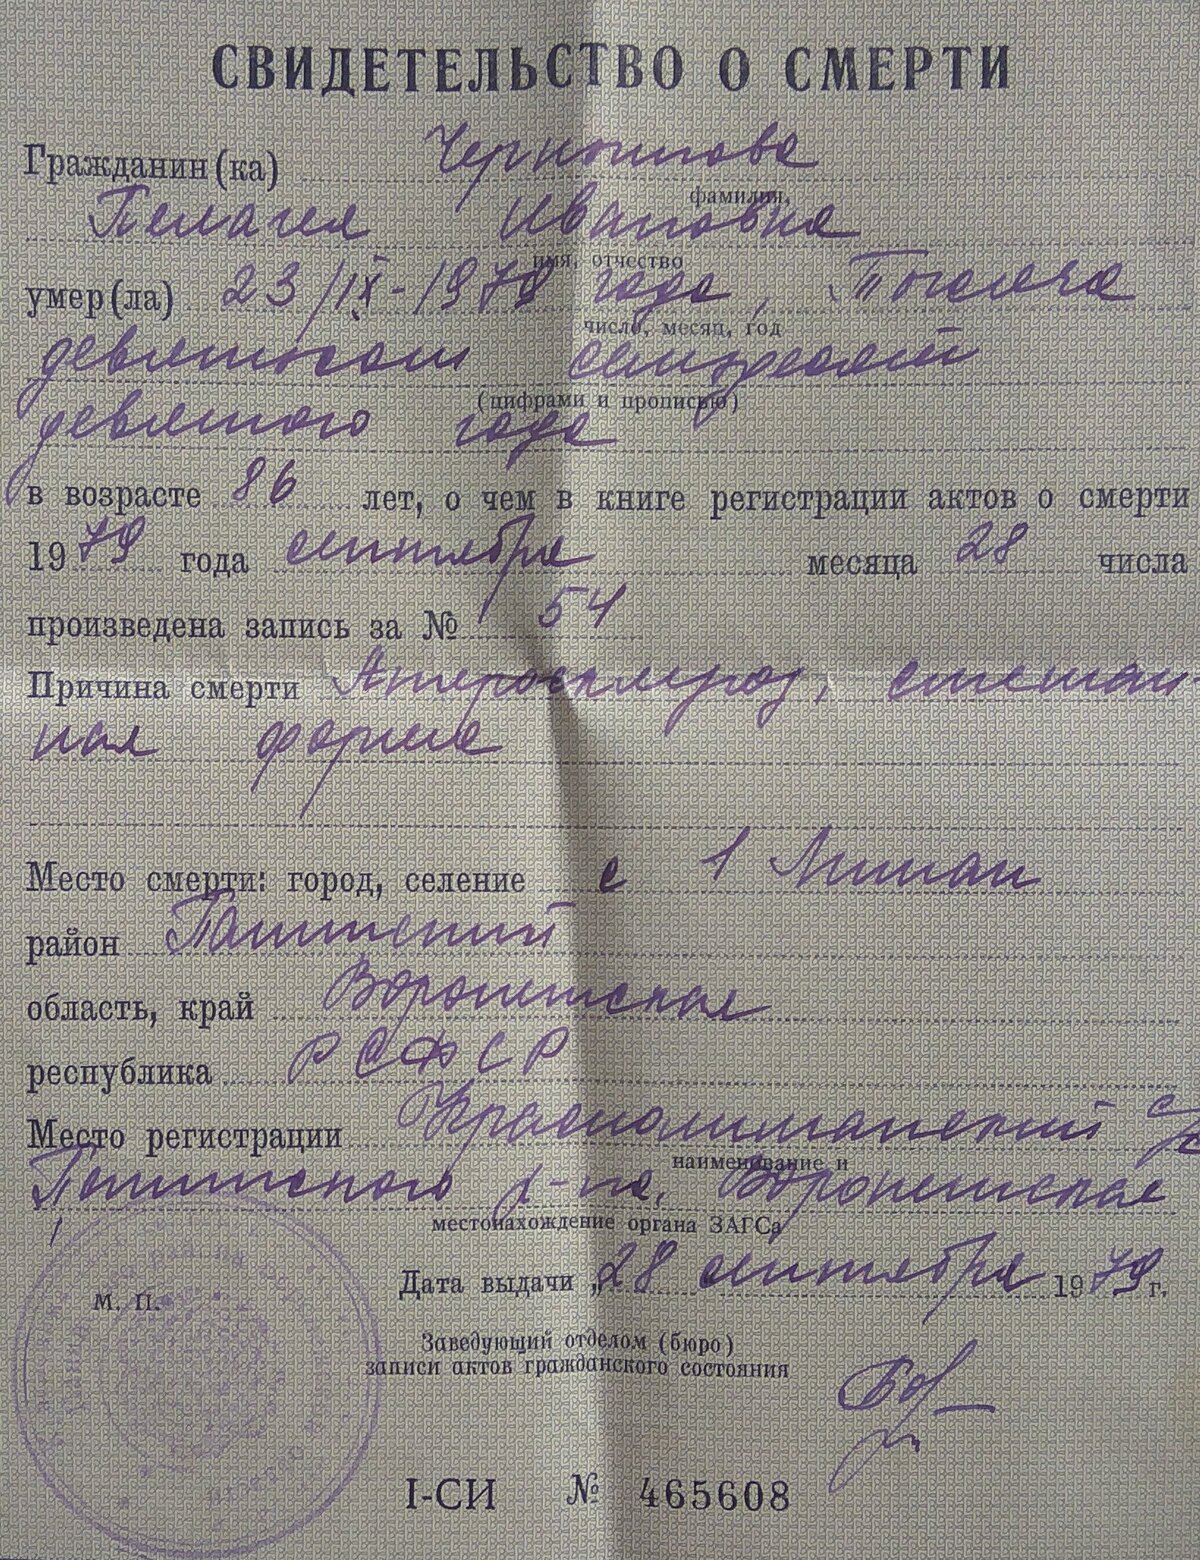 СВИДЕТЕЛЬСТВО О СМЕРТИ
Гражданин(ка) Чернышова
фамилия,
Пелагея Ивановна
имя, отчество
умер(ла) 23/IX-1979 года, Тысяча
число, месяц, год
девятьсот семьдесят
(цифрами и прописью)
девятого года
в возрасте 86 лет, о чем в книге регистрации актов о смерти
1979 года сентября месяца 28 числа
произведена запись за № 54
Причина смерти Атеросклероз, смешан-
ная форма
Место смерти: город, селение с 1 Лиман
район Панинский
область, край Воронежская
республика РСФСР
Место регистрации Краснолиманский с/с
наименование и
Панинского р-на, Воронежская
местонахождение органа ЗАГСа
Дата выдачи „28 сентября 1979 г.
М. П.
Заведующий отделом (бюро)
записи актов гражданского состояния
I-СИ № 465608